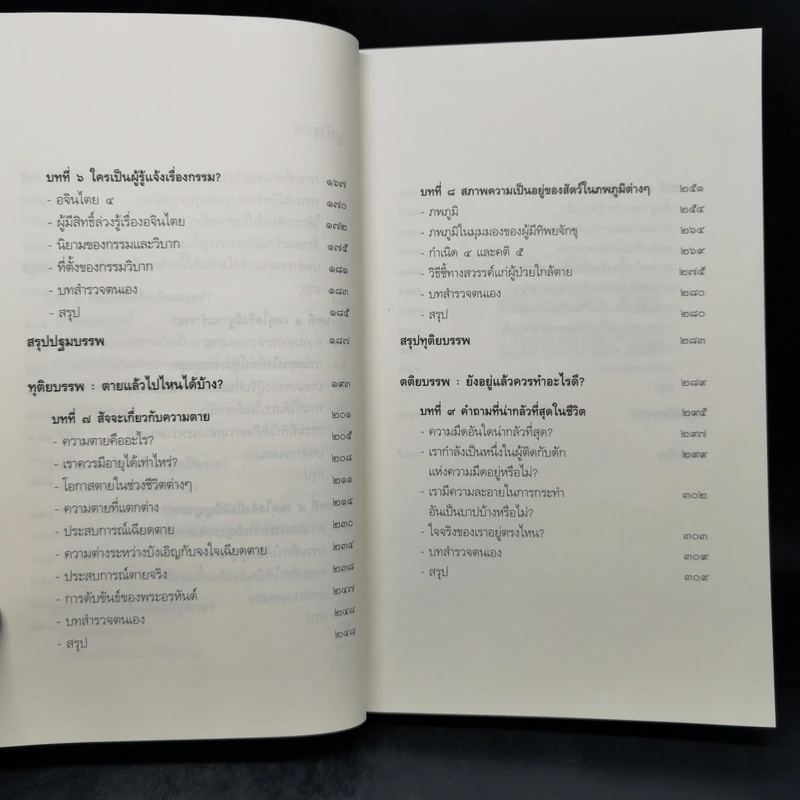 บทที่ ๖ ใครเป็นผู้รู้แจ้งเรื่องกรรม? ๑๖๗
- อจินไตย ๔ ๑๗๐
- ผู้มีสิทธิ์ล่วงรู้เรื่องอจินไตย ๑๗๒
- นิยามของกรรมและวิบาก ๑๗๕
- ที่ตั้งของกรรมวิบาก ๑๘๑
- บทสำรวจตนเอง ๑๘๓
- สรุป ๑๘๕
สรุปปฐมบรรพ ๑๘๗
ทุติยบรรพ : ตายแล้วไปไหนได้บ้าง? ๑๙๓
บทที่ ๗ สัจจะเกี่ยวกับความตาย ๒๐๑
- ความตายคืออะไร? ๒๐๕
- เราควรมีอายุได้เท่าไหร่? ๒๐๘
- โอกาสตายในช่วงชีวิตต่างๆ ๒๑๑
- ความตายที่แตกต่าง ๒๑๔
- ประสบการณ์เฉียดตาย ๒๓๐
- ความต่างระหว่างบังเอิญกับจงใจเฉียดตาย ๒๓๔
- ประสบการณ์ตายจริง ๒๓๘
- การดับขันธ์ของพระอรหันต์ ๒๔๗
- บทสำรวจตนเอง ๒๔๘
- สรุป ๒๔๘
บทที่ ๘ สภาพความเป็นอยู่ของสัตว์ในภพภูมิต่างๆ ๒๕๑
- ภพภูมิ ๒๕๔
- ภพภูมิในมุมมองของผู้มีทิพยจักขุ ๒๖๔
- กำเนิด ๔ และคติ ๕ ๒๖๙
- วิธีชี้ทางสวรรค์แก่ผู้ป่วยใกล้ตาย ๒๗๕
- บทสำรวจตนเอง ๒๘๐
- สรุป ๒๘๐
สรุปทุติยบรรพ ๒๘๓
ตติยบรรพ : ยังอยู่แล้วควรทำอะไรดี? ๒๘๙
บทที่ ๙ คำถามที่น่ากลัวที่สุดในชีวิต ๒๙๕
- ความมืดอันใดน่ากลัวที่สุด? ๒๙๗
- เรากำลังเป็นหนึ่งในผู้ติดกับดัก ๒๙๙
แห่งความมืดอยู่หรือไม่?
- เรามีความละอายในการกระทำ ๓๐๒
อันเป็นบาปบ้างหรือไม่?
- ใจจริงของเราอยู่ตรงไหน? ๓๐๓
- บทสำรวจตนเอง ๓๐๙
- สรุป ๓๐๙